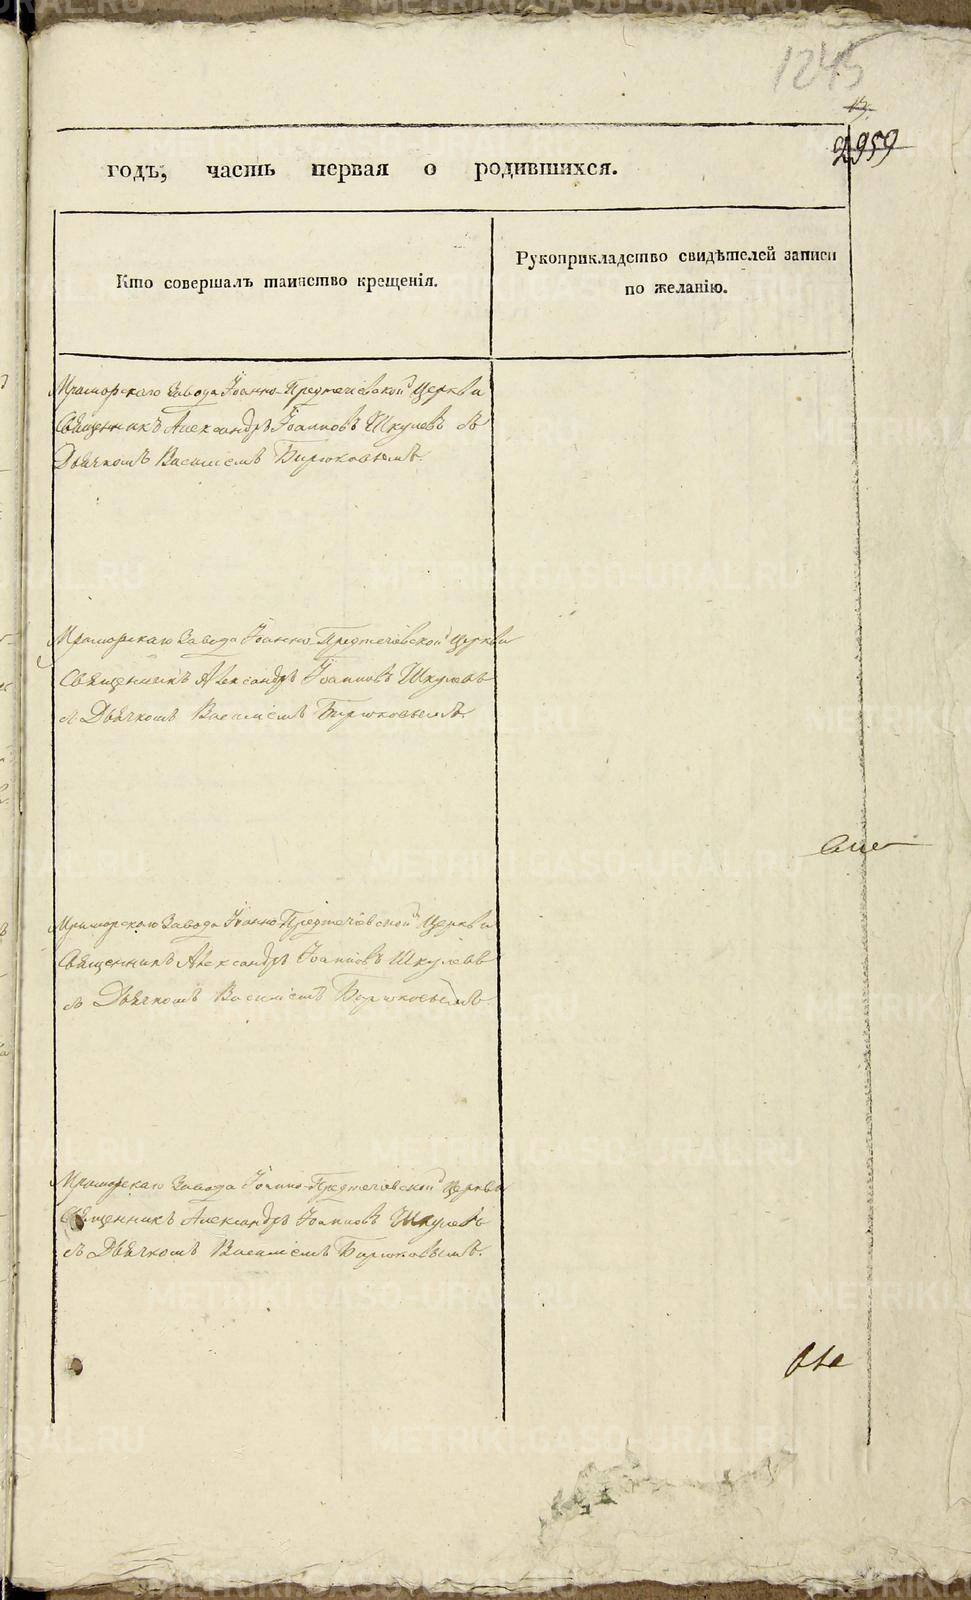 1245
13.
2959
годъ, часть первая о родившихся.
Кто совершалъ таинство крещенія.
Рукоприкладство свидѣтелей записи
по желанію.
Мраморскаго Завода Іоанно-Предтечевской Церкви
Священникъ Александръ Іоанновъ Шкулевъ съ
Дьячкомъ Василіемъ Бирюковымъ.
Мраморскаго Завода Іоанно Предтечевской Церкви
Священникъ Александръ Іоанновъ Шкулевъ
съ Дьячкомъ Василіемъ Бирюковымъ.
Мраморскаго Завода Іоанно-Предтечевской Церкви
Священникъ Александръ Іоанновъ Шкулевъ
съ Дьячкомъ Василіемъ Бирюковымъ.
Мраморскаго Завода Іоанно-Предтечевской Церкви
Священникъ Александръ Іоанновъ Шкулевъ
съ Дьячкомъ Василіемъ Бирюковымъ.
METRIKI.GASO-URAL.RU